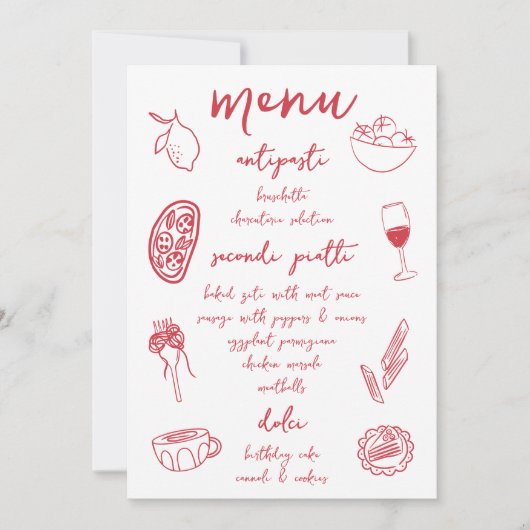 menu
antipasti
bruschetta
charcuterie selection
secondi piatti
baked ziti with meat sauce
sausage with peppers & onions
eggplant parmigiana
chicken marsala
meatballs
dolci
birthday cake
cannoli & cookies